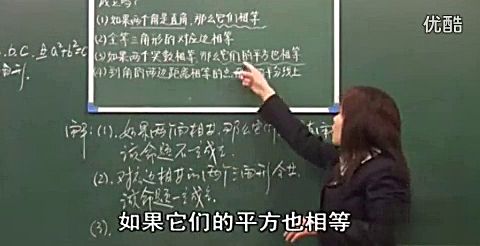 优酷
成立吗?
(1)如果两个角是直角,那么它们相等
(2)全等三角形的对应边相等
(3)如果两个实数相等,那么它们的平方也相等
(4)到角的两边距离相等的点 平分线上
b.c.且a²+b²=c
解:(1).如果两角相等,那么它们
该命题不一定成立.
(2).对应边相等的两个三角形全等.
该命题一定成立.
(3).
如果它们的平方也相等